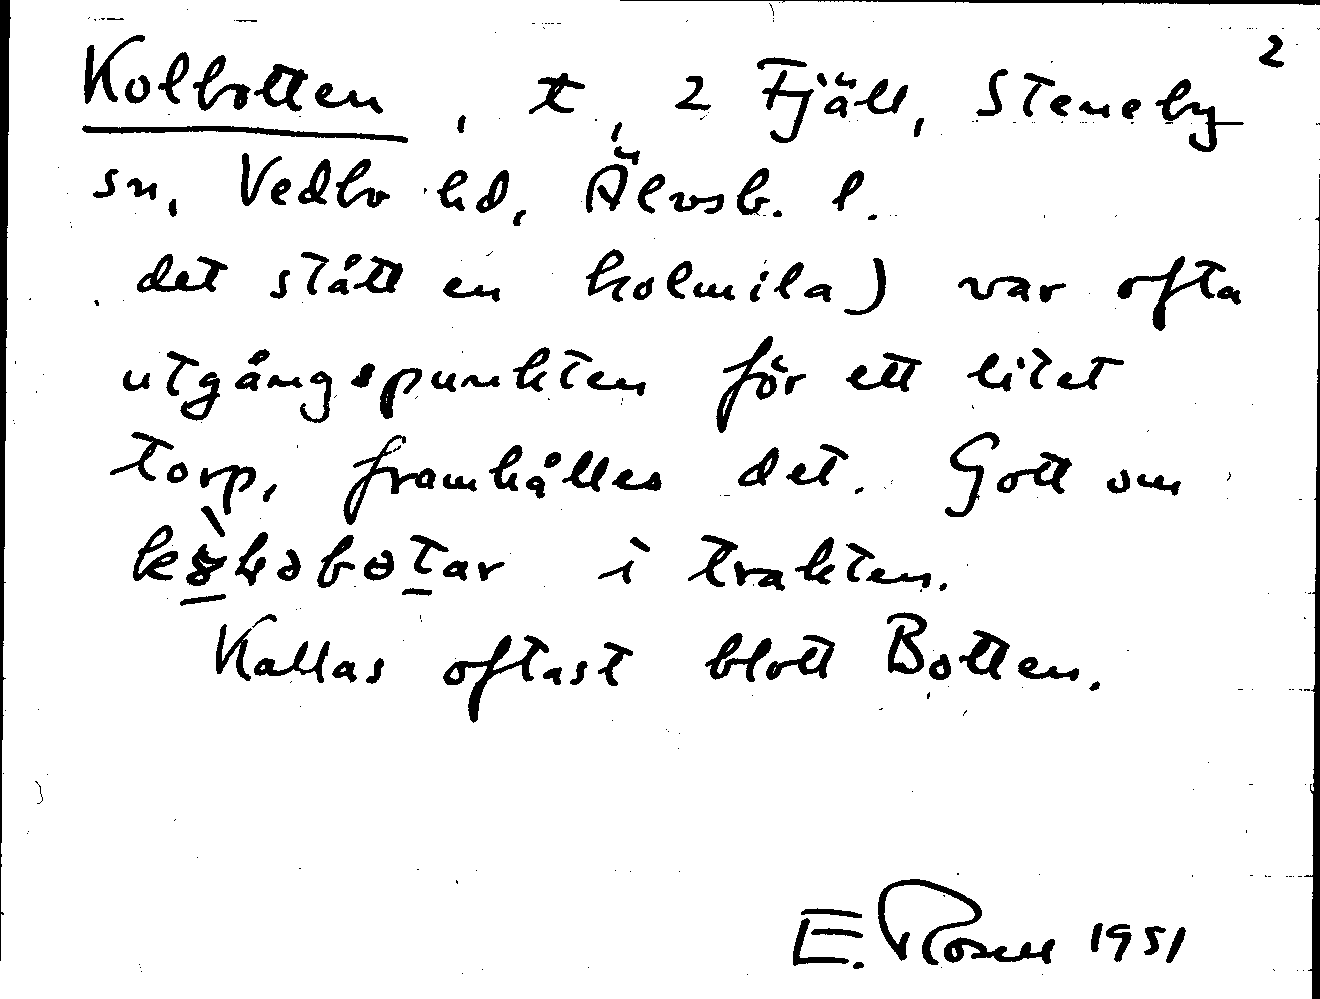 2
Kolbotten, t, 2 Fjäll, Steneby
sn, Vedbo hd, Älvsb. l.
det stått en kolmila) var ofta
utgångspunkten för ett litet
torp, framhålles det. Gott om
i trakten.
Kallas oftast blott Botten.
E. Rosell 1951